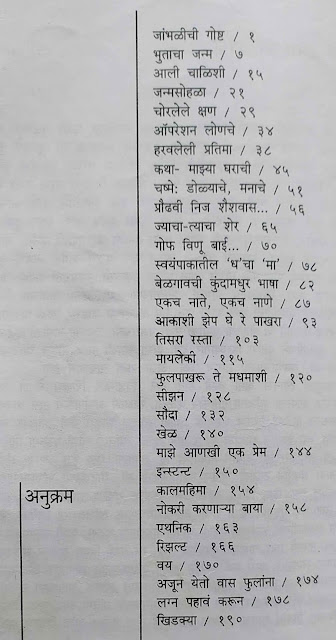 जांभळीची गोष्ट / १
भुताचा जन्म / ७
आली चाळिशी / १५
जन्मसोहळा / २१
चोरलेले क्षण / २९
ऑपरेशन लोणचे / ३४
हरवलेली प्रतिमा / ३८
कथा- माझ्या घराची / ४५
चष्मे: डोळ्याचे, मनाचे / ५१
प्रौढवी निज शैशवास... / ५६
ज्याचा-त्याचा शेर / ६५
गोफ विणू बाई... / ७०
स्वयंपाकातील 'ध'चा 'मा' / ७८
बेळगावची कुंदामधुर भाषा / ८२
एकच नाते, एकच नाणे / ८७
आकाशी झेप घे रे पाखरा / ९३
तिसरा रस्ता / १०३
मायलेकी / ११५
फुलपाखरू ते मधमाशी / १२०
सीझन / १२८
सौदा / १३२
खेळ / १४०
माझे आणखी एक प्रेम / १४४
इन्स्टन्ट / १५०
कालमहिमा / १५४
नोकरी करणाऱ्या बाया / १५८
एथनिक / १६३
रिझल्ट / १६६
वय / १७०
अजून येतो वास फुलांना / १७४
लग्न पहावं करून / १७८
खिडक्या / १९०
अनुक्रम